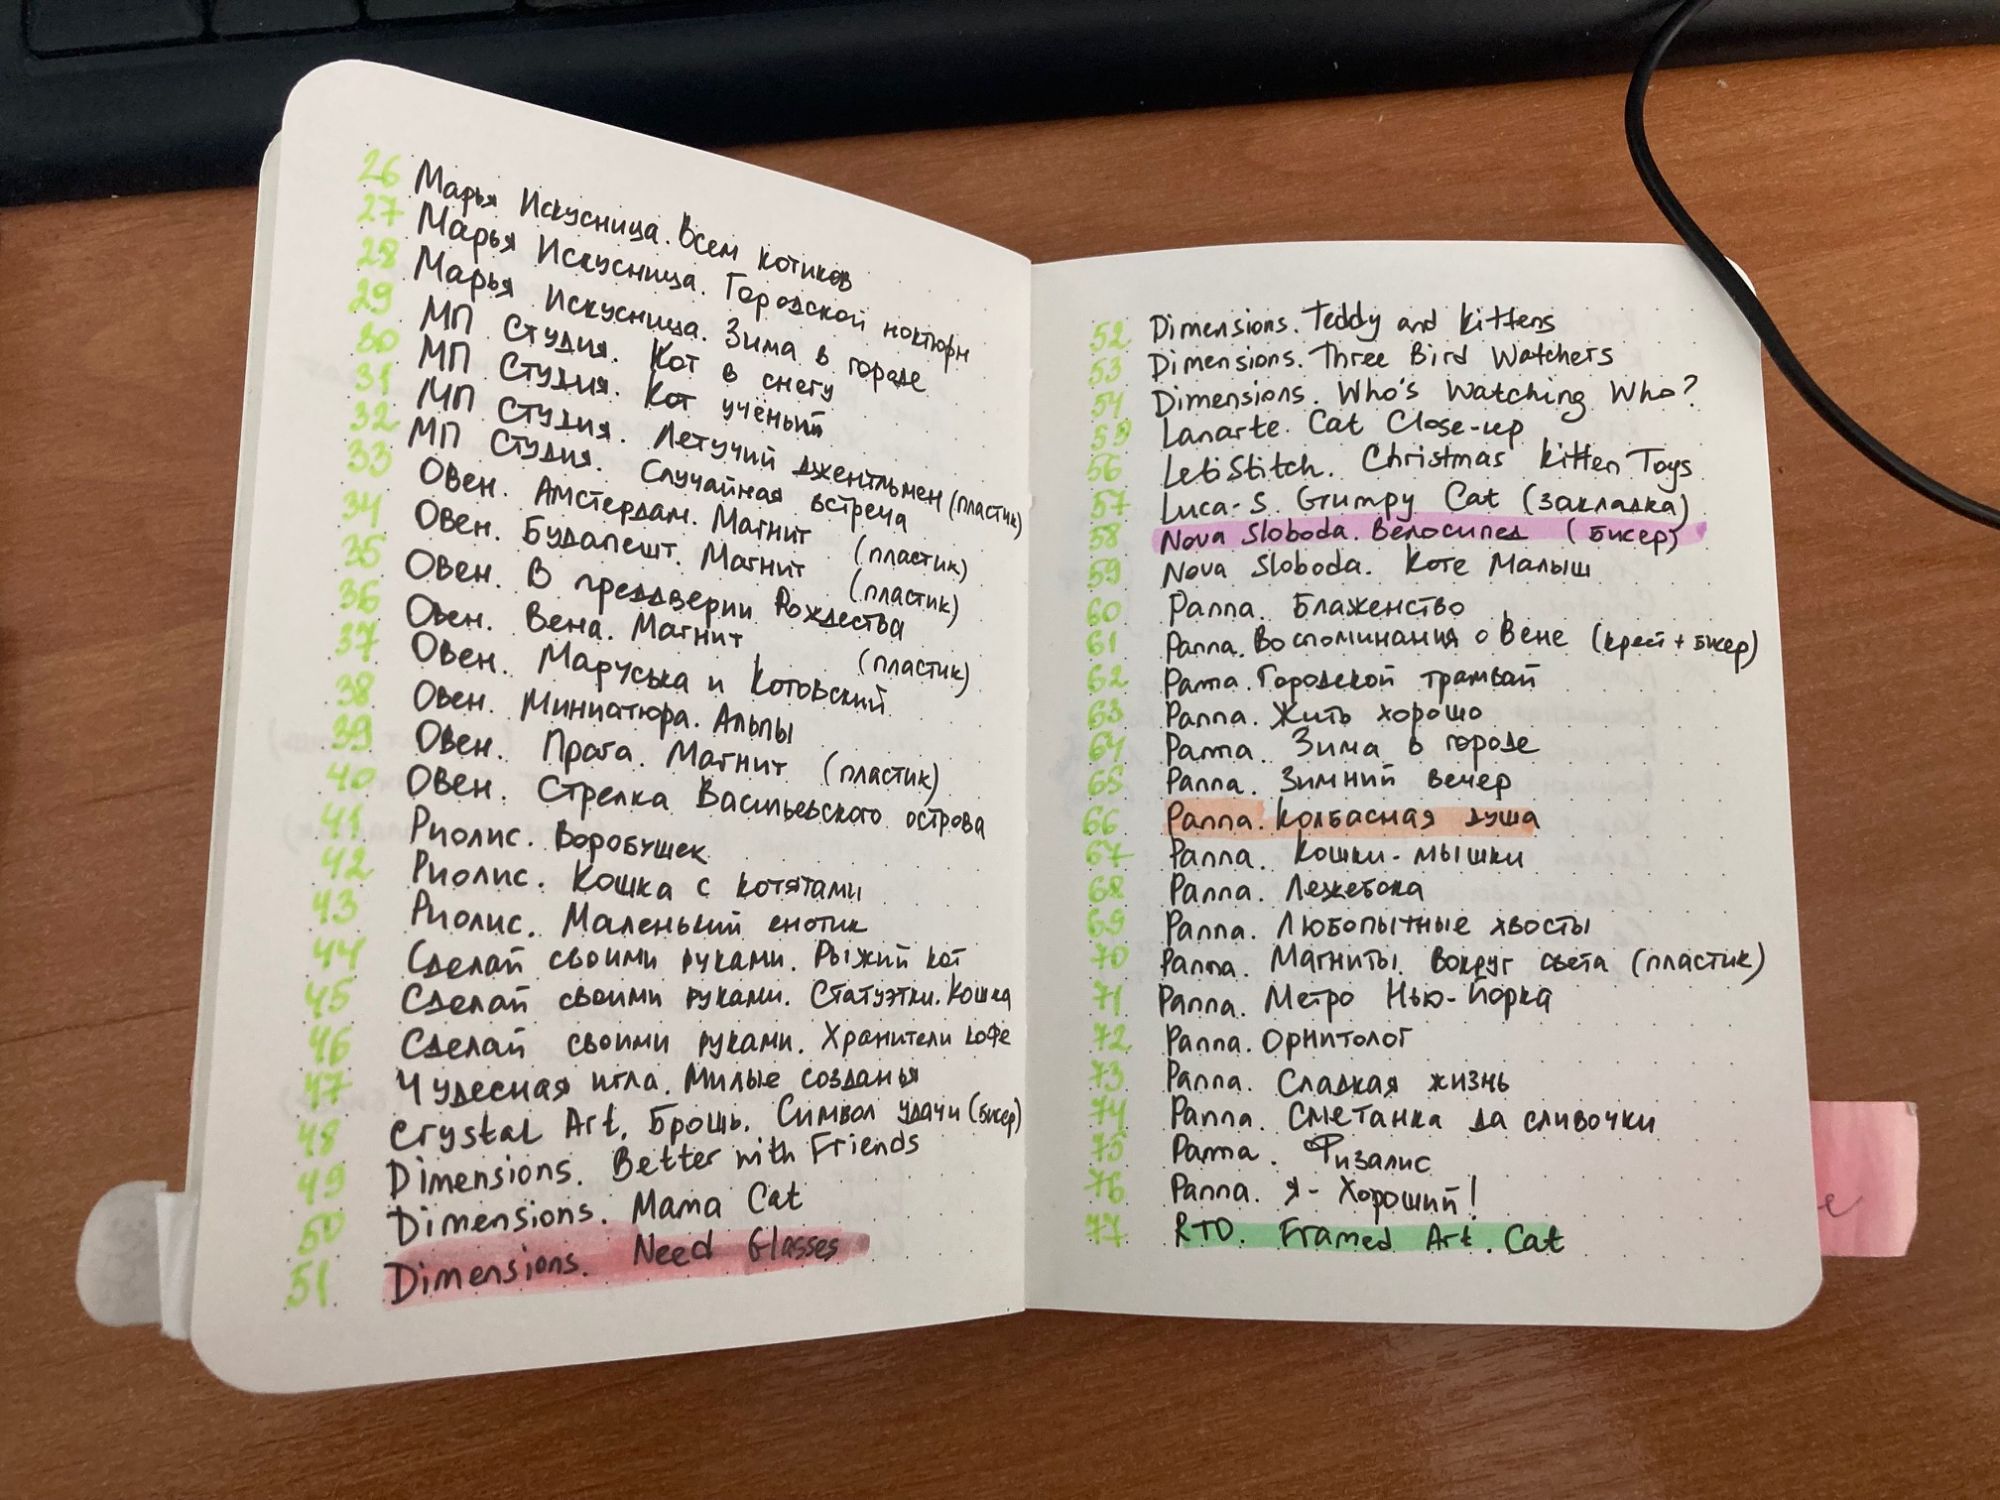 26 Марья Искусница. Всем котиков
27 Марья Искусница. Городской ноктюрн
28 Марья Искусница. Зима в городе
29 МП Студия. Кот в снегу
30 МП Студия. Кот учёный
31 МП Студия. Летучий джентльмен (пластик)
32 МП Студия. Случайная встреча
33 Овен. Амстердам. Магнит (пластик)
34 Овен. Будапешт. Магнит (пластик)
35 Овен. В преддверии Рождества
36 Овен. Вена. Магнит (пластик)
37 Овен. Маруська и Котовский
38 Овен. Миниатюра. Альпы
39 Овен. Прага. Магнит (пластик)
40 Овен. Стрелка Васильевского острова
41 Риолис. Воробушек
42 Риолис. Кошка с котятами
43 Риолис. Маленький енотик
44 Сделай своими руками. Рыжий кот
45 Сделай своими руками. Статуэтки. Кошка
46 Сделай своими руками. Хранители кофе
47 Чудесная игла. Милые созданья
48 Crystal Art. Брошь. Символ удачи (бисер)
49 Dimensions. Better with Friends
50 Dimensions. Mama Cat
51 Dimensions. Need Glasses
52 Dimensions. Teddy and Kittens
53 Dimensions. Three Bird Watchers
54 Dimensions. Who's Watching Who?
55 Lanarte. Cat Close-up
56 LetiStitch. Christmas Kitten Toys
57 Luca-S. Grumpy Cat (закладка)
58 Nova Sloboda. Велосипед (бисер)
59 Nova Sloboda. Коте Малыш
60 Panna. Блаженство
61 Panna. Воспоминания о Вене (крест + бисер)
62 Panna. Городской трамвай
63 Panna. Жить хорошо
64 Panna Зима в городе
65 Panna. Зимний вечер
66 Panna. Колбасная душа
67 Panna. Кошки-мышки
68 Panna. Лежебока
69 Panna. Любопытные хвосты
70 Panna. Магниты. Вокруг света (пластик)
71 Panna. Метро Нью-Йорка
72 Panna. Орнитолог
73 Panna. Сладкая жизнь
74 Panna. Сметанка да сливочки
75 Panna. Физалис
76 Panna. Я - Хороший!
77 RTO. Framed Art. Cat